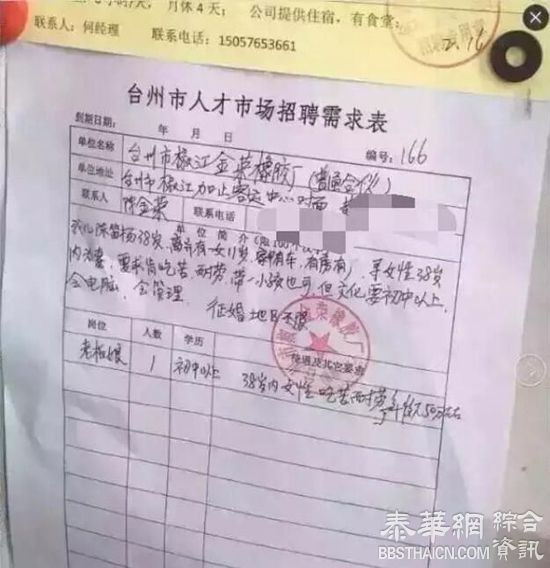 月休4天； 公司提供住宿，有食堂；
联系人：何经理 联系电话：15057653661
2.16
台州市人才市场招聘需求表
到期日期： 年 月 日 编号：166
单位名称 台州市椒江金荣橡胶厂（普通合伙）
单位地址 台州市椒江加止客运中心对面
联系人 陈金荣 联系电话
单位简介
38岁，离异有一女11岁，有车，有房，寻女性38岁
内为妻，要求肯吃苦耐劳，带一小孩也可，但文化要初中以上，
会电脑，会管理。 征婚地区不限
岗位 人数 学历 待遇及其它要求
老板娘 1 初中以上 38岁内女性吃苦耐劳年薪50万左右
泰華網 綜合資訊
BBSTHAICN.COM